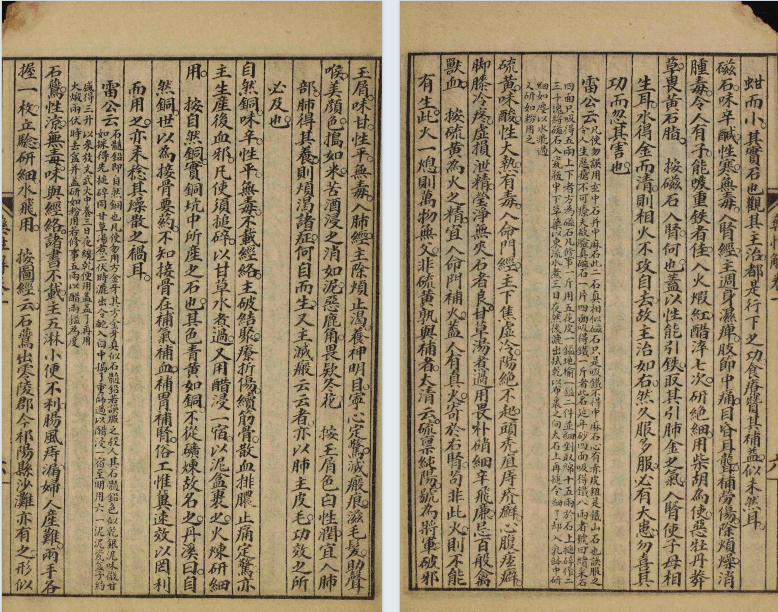 蚶而小其實石也觀其主治都是行下之功食療謂其補益似未然耳
磁石味辛鹹性寒無毒入腎經主週身濕痺肢節中痛目昏耳聾補勞傷除煩燥消
腫毒令人有子能吸重鉄者佳入火煆紅醋淬七次研絕細用柴胡為使惡牡丹莽
草畏黃石脂　按磁石入腎何也蓋以性能引鉄取其引肺金之氣入腎使子母相
生耳水得金而清則相火不攻自去故主治如右然久服多服必有大患勿喜其
功而忽其害也
雷公云
凡使勿誤用玄中石并中麻石此二石真相似磁石只是吸鐵不得中麻石心有赤皮粗是鐵山石也誤服之
令人生惡瘡不可療夫欲驗真磁石一片四面吸得鐵一斤者此名延年砂四面吸得鐵八兩者號曰續采石
四面只吸得五兩上下者方為磁石凡修事一斤用五花皮一鎰地榆一鎰二件並細剉取綿十五兩於石上搥碎作二
三十塊將磁石入瓷瓶中下草藥以東流水煮三日夜然後漉出拭乾以布裹之向大石上再搥令細了却入乳鉢中研
細如塵以水飛過
又研如粉用之
硫黃味酸性大熱有毒入命門經主下焦虛冷陽絕不起頭禿疽痔疥癬心腹痃癖
脚膝冷疼虛損泄精瑩淨無夾石者良甘草湯煮過用畏朴硝細辛飛廉忌百般禽
獸血　按硫黃為火之精宜入命門補火蓋人有真火寄於右腎苟非此火則不能
有生此火一熄則萬物無父非硫黃孰與補者太清云硫稟純陽號為將軍破邪
玉屑味甘性平無毒入肺經主除煩止渴養神明目寧心定驚滅瘢痕滋毛髮助聲
喉美顏色搗如米苦酒浸之消如泥惡鹿角畏欵冬花　按玉屑色白性潤宜入肺
部肺得其養則煩渴諸症何自而生又主滅瘢云云者亦以肺主皮毛功效之所
必及也
自然銅味辛性平無毒不載經絡主破結聚療折傷續筋骨散血排膿止痛定驚亦
主生產後血邪凡使須搥碎以甘草水煮過又用醋浸一宿以泥盒裹之火煉研細
用　按自然銅實銅坑中所產之石也其色青黃如銅不從礦煉故名之丹溪曰自
然銅世以為接骨要藥不知接骨在補氣補血補胃補腎俗工惟冀速效以罔利
而用之亦未稔其燥散之禍耳
雷公云
石髓鉛即自然銅也凡使勿用方金牙其方金牙真似石髓鉛若誤服之殺人其石髓鉛色似乾銀泥味微甘
如採得先搥碎同甘草湯煮一伏時漉出令乾入臼中搗了重篩過以醋浸一宿至明用六一泥泥瓷盒子約
盛得三升以來於文武火中養三日夜纔乾便用蓋蓋了再用
火煆兩伏時去蓋并盒研如粉用若修事五兩以醋兩鎰為度
石鷰性涼無毒味與經絡諸書不載主五淋小便不利腸風痔瘻婦人產難兩手各
握一枚立驗研細水飛用　按圖經云石鷰出零陵郡今祁陽縣沙灘亦有之形似